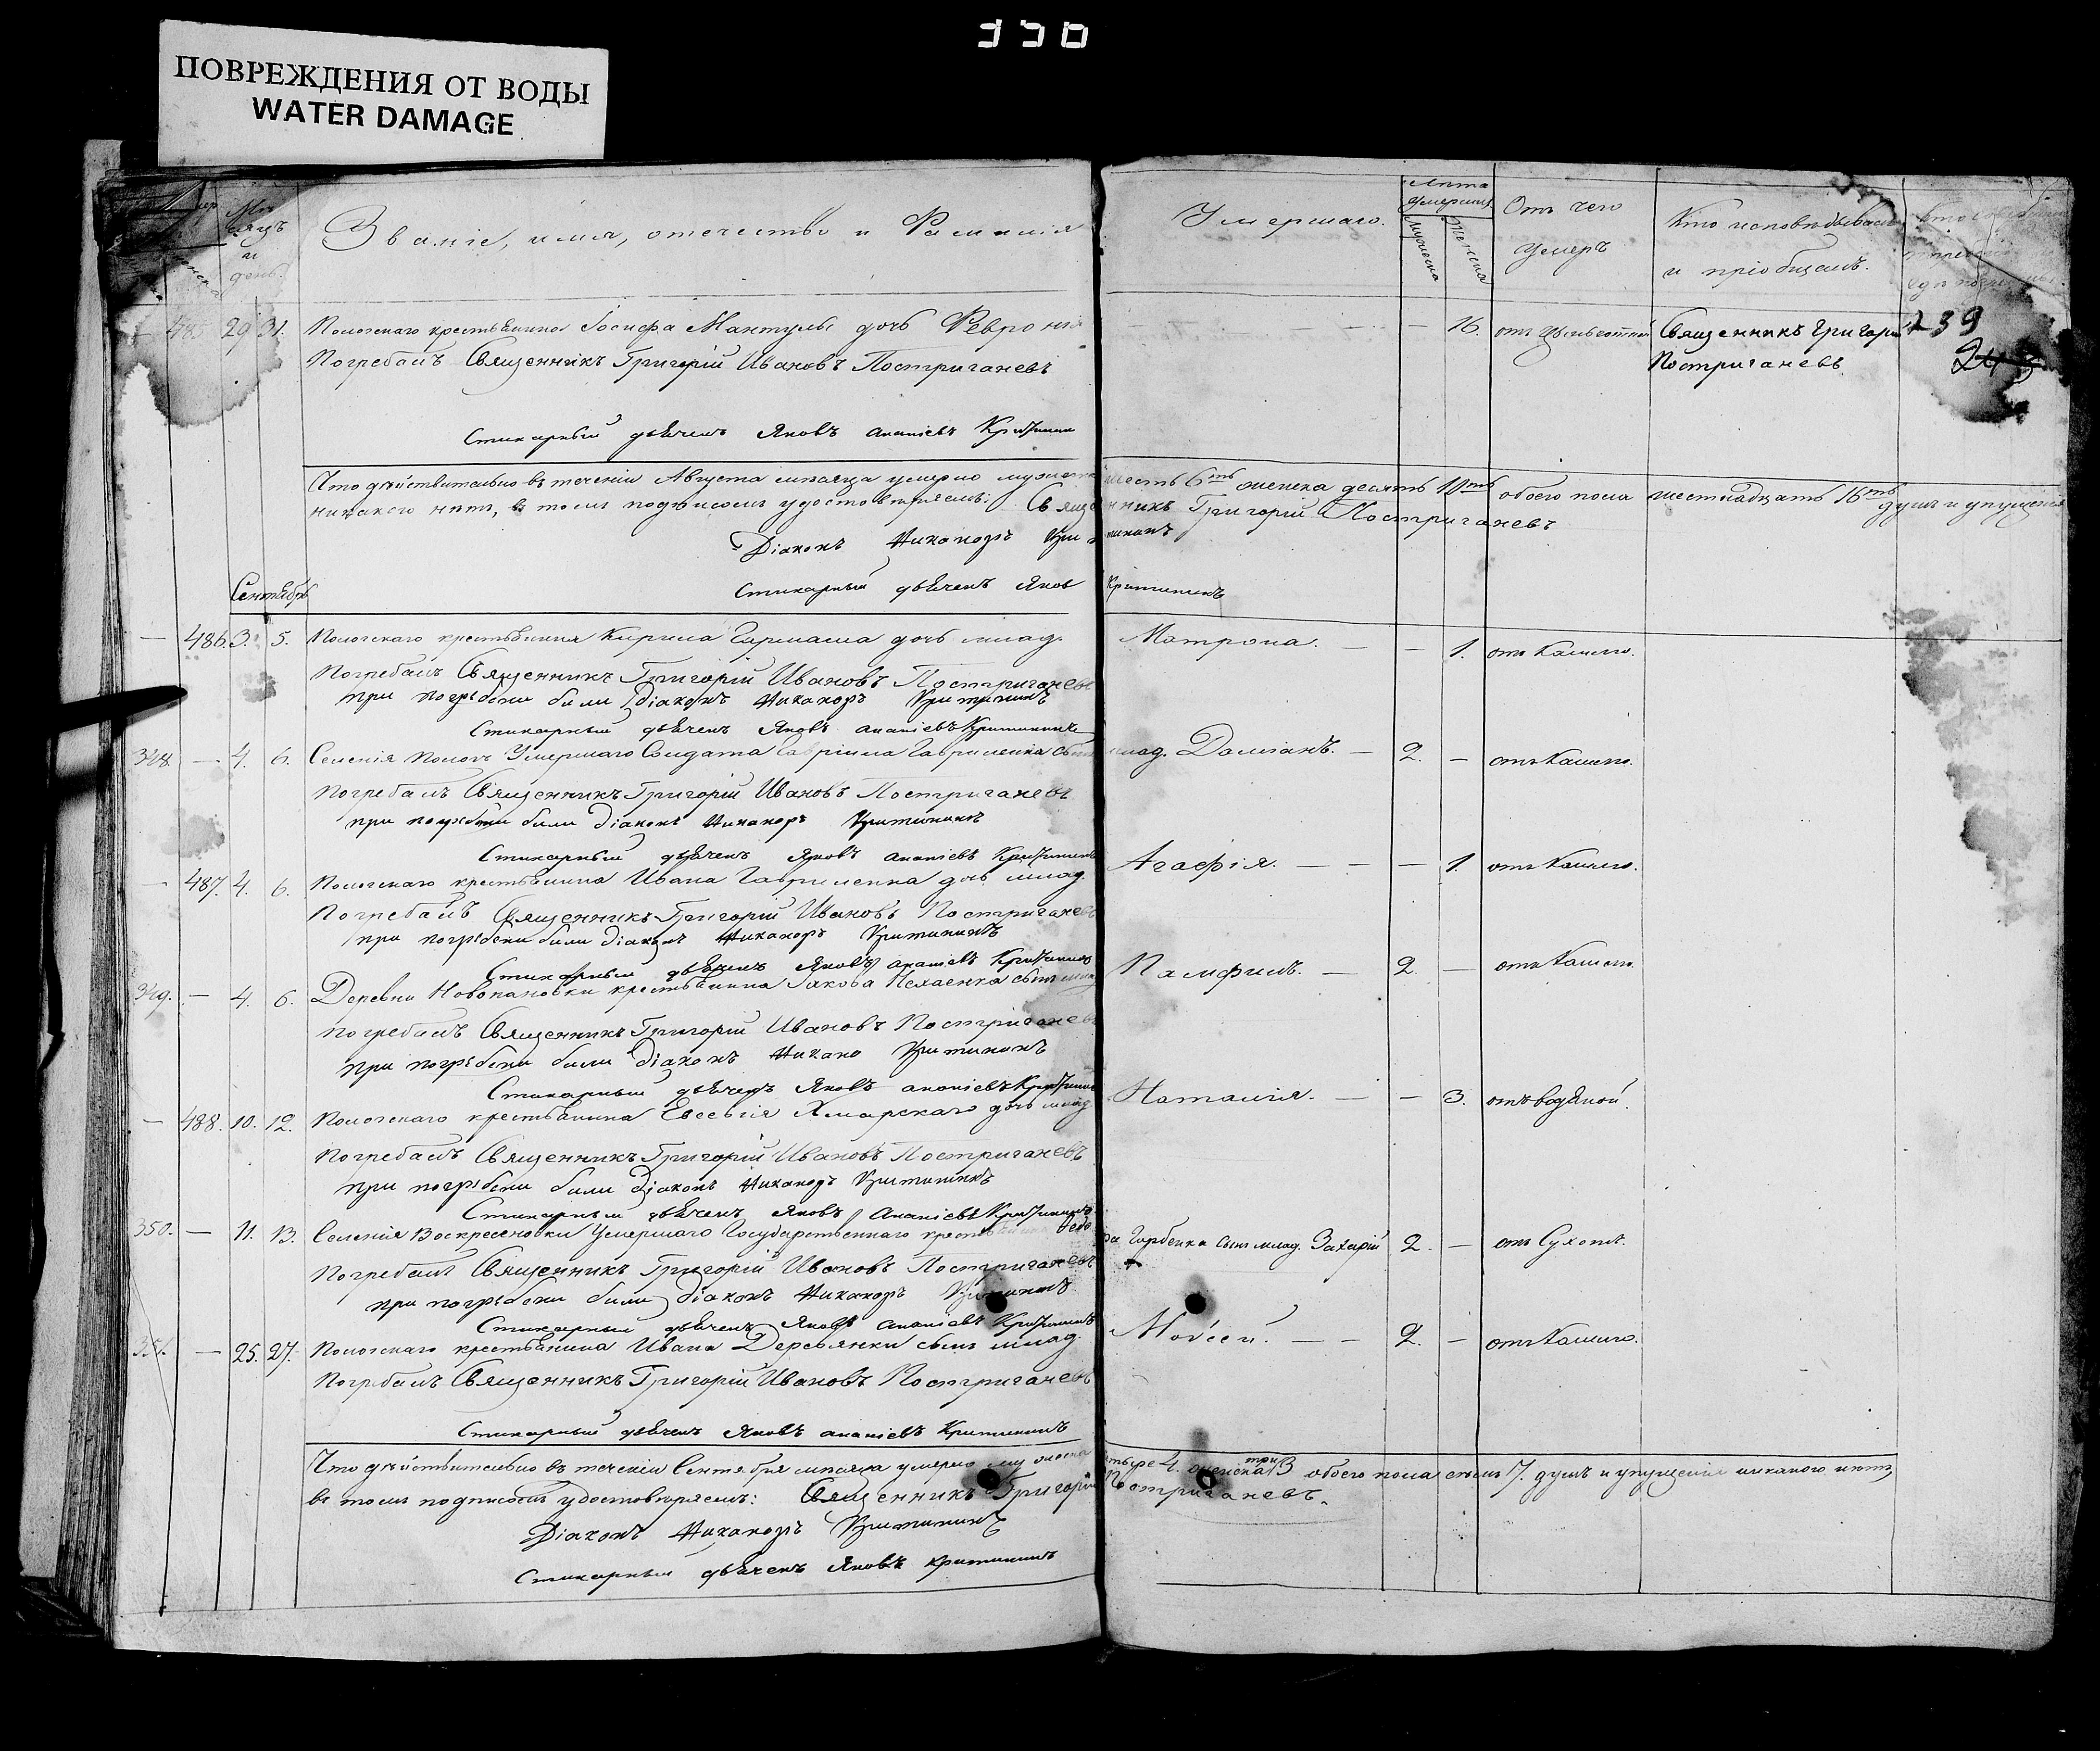 330
ПОВРЕЖДЕНИЯ ОТ ВОДЫ
WATER DAMAGE
Мѣсяцъ и день.
Званіе, имя, отечество и Фамилія Умершаго.
Лѣта умершихъ
Мужеска Женска
Отъ чего умеръ
Кто исповѣдывалъ и пріобщалъ.
485. 29 31. Пологскаго крестьянина Іосифа Мантулы дочь Феврония — — 16. отъ Священникъ Григорій
239
Погребалъ Священникъ Григорій Ивановъ Постригачевъ Постригачевъ
243
Стихарный дьячекъ Яковъ Ананіевъ Критининъ
Что дѣйствительно въ теченіи Августа мѣсяца умерло мужеска шесть 6ть женска десять 10ть обоего пола шестнадцать 16ть душъ и упущенія
никакого нѣтъ, въ томъ подписомъ удостовѣряемъ: Священникъ Григорій Постригачевъ
Діаконъ Никаноръ Критининъ
Стихарный дьячекъ Яковъ Критининъ
Сентябрь
— 486. 3. 5. Пологскаго крестьянина Кирила Гармаша дочь млад. Матрона. — — 1. отъ Кашлю.
Погребалъ Священникъ Григорій Ивановъ Постригачевъ
при погрѣбени були Діаконъ Никаноръ Критининъ
Стихарный дьячекъ Яковъ Ананіевъ Критининъ
348. — 4. 6. Селенія Пологъ Умершаго Солдата Гавріила Гавриленка сынъ млад. Даміанъ. — 2. — отъ Кашлю.
Погребалъ Священникъ Григорій Ивановъ Постригачевъ
при погрѣбени були Діаконъ Никаноръ Критининъ
Стихарный дьячекъ Яковъ Ананіевъ Критининъ
— 487. 4. 6. Пологскаго крестьянина Ивана Гавриленка дочь млад. Агафія. — — — 1. отъ Кашлю.
Погребалъ Священникъ Григорій Ивановъ Постригачевъ
при погрѣбени були Діаконъ Никаноръ Критининъ
Стихарный дьячекъ Яковъ Ананіевъ Критининъ
349. — 4. 6. Деревни Новопановки крестьянина Іакова Нехаенка сынъ млад. Памфилъ. — 2. — отъ Кашлю.
погребалъ Священникъ Григорій Ивановъ Постригачевъ
при погрѣбени були Діаконъ Никано Критининъ
Стихарный дьячекъ Яковъ Ананіевъ Критининъ
— 488. 10. 12. Пологскаго крестьянина Евсевія Хмарскаго дочь млад. Наталія. — — 3. отъ водяной.
Погребалъ Священникъ Григорій Ивановъ Постригачевъ
при погрѣбени були Діаконъ Никаноръ Критининъ
Стихарный дьячекъ Яковъ Ананіевъ Критининъ
350. — 11. 13. Селенія Воскресеновки Умершаго Государственнаго крестьянина Горбенка сынъ млад. Захарій 2. — отъ Сухотъ.
Погребалъ Священникъ Григорій Ивановъ Постригачевъ
при погрѣбени були Діаконъ Никаноръ Критининъ
Стихарный дьячекъ Яковъ Ананіевъ Критининъ
351. — 25. 27. Пологскаго крестьянина Ивана Деревянки сынъ млад. Моисей. — — 2. — отъ Кашлю.
Погребалъ Священникъ Григорій Ивановъ Постригачевъ
Стихарный дьячекъ Яковъ Ананіевъ Критининъ
Что дѣйствительно въ теченіи Сентября мѣсяца умерло мужеска четыре 4. женска три 3 обоего пола семь 7. душъ и упущенія никакого нѣтъ,
въ томъ подписомъ удостовѣряемъ: Священникъ Григорій Постригачевъ.
Діаконъ Никаноръ Критининъ
Стихарный дьячекъ Яковъ Критининъ